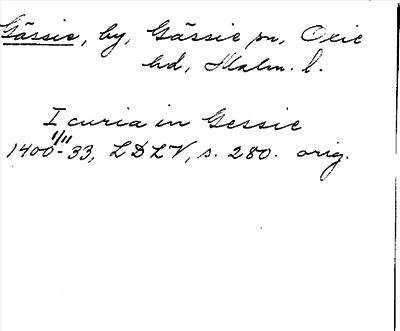 Gässie, by, Gässie sn, Oxie
hd, Malm. l.
I curia in Gessie
1400-33, LDLV, s. 280. orig.